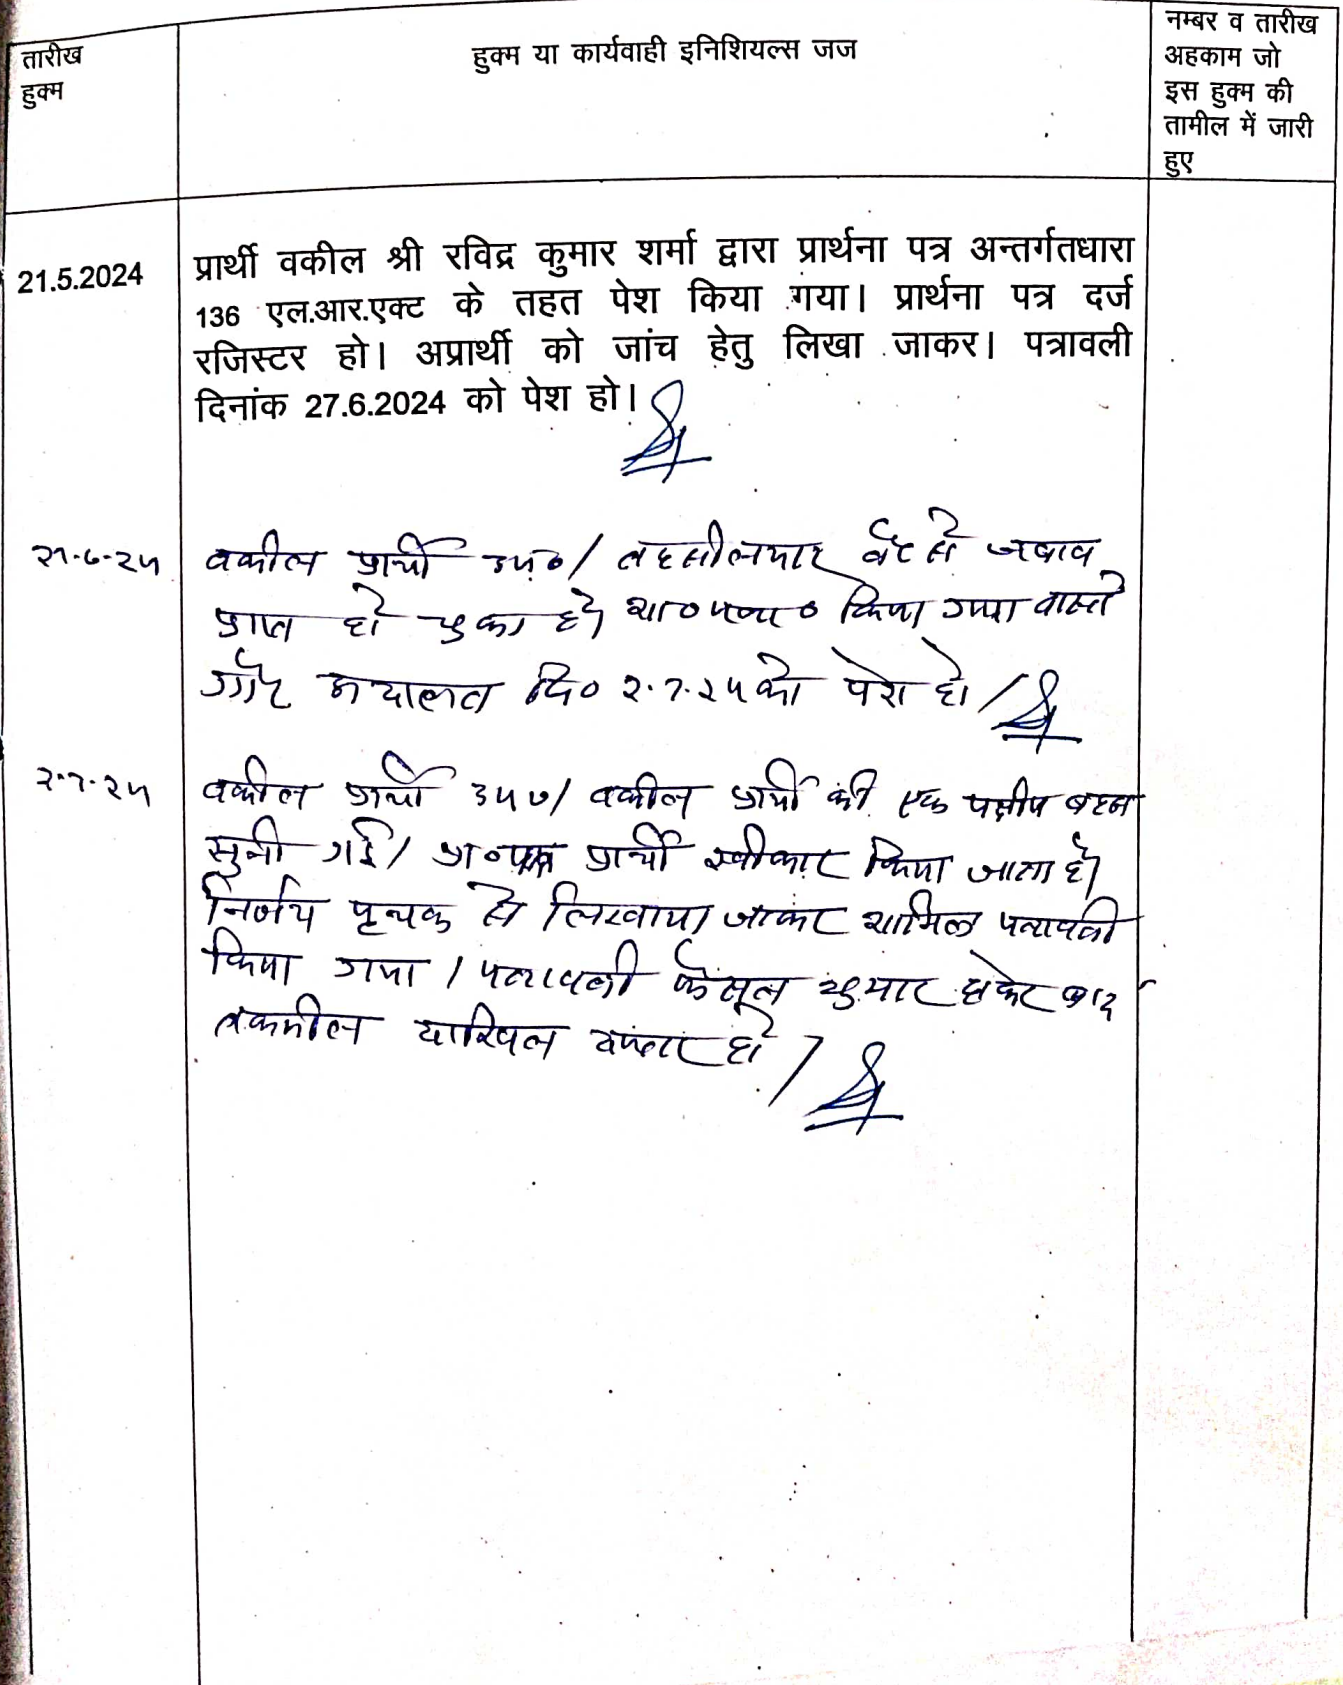 तारीख
हुक्म
हुक्म या कार्यवाही इनिशियल्स जज
नम्बर व तारीख
अहकाम जो
इस हुक्म की
तामील में जारी
हुए
21.5.2024
प्रार्थी वकील श्री रविद्र कुमार शर्मा द्वारा प्रार्थना पत्र अन्तर्गतधारा
136 एल.आर.एक्ट के तहत पेश किया गया। प्रार्थना पत्र दर्ज
रजिस्टर हो। अप्रार्थी को जांच हेतु लिखा जाकर। पत्रावली
दिनांक 27.6.2024 को पेश हो।
वकील प्रार्थी उप०/ तहसीलदार से जबाव
प्राप्त हो चुका है। शा०पत्रा० किया गया वास्ते
दि० २.७.२४ को पेश हो/
२.७.२४
वकील प्रार्थी उप०/ वकील प्रार्थी की एक पक्षीय बहस
सुनी गई/ प्रा०पत्र प्रार्थी स्वीकार किया जाता है।
निर्णय पृथक से लिखाया जाकर शामिल पत्रावली
किया गया / पत्रावली फैसूल शुमार होकर बाद
तकमील दाखिल दफ्तर हो /